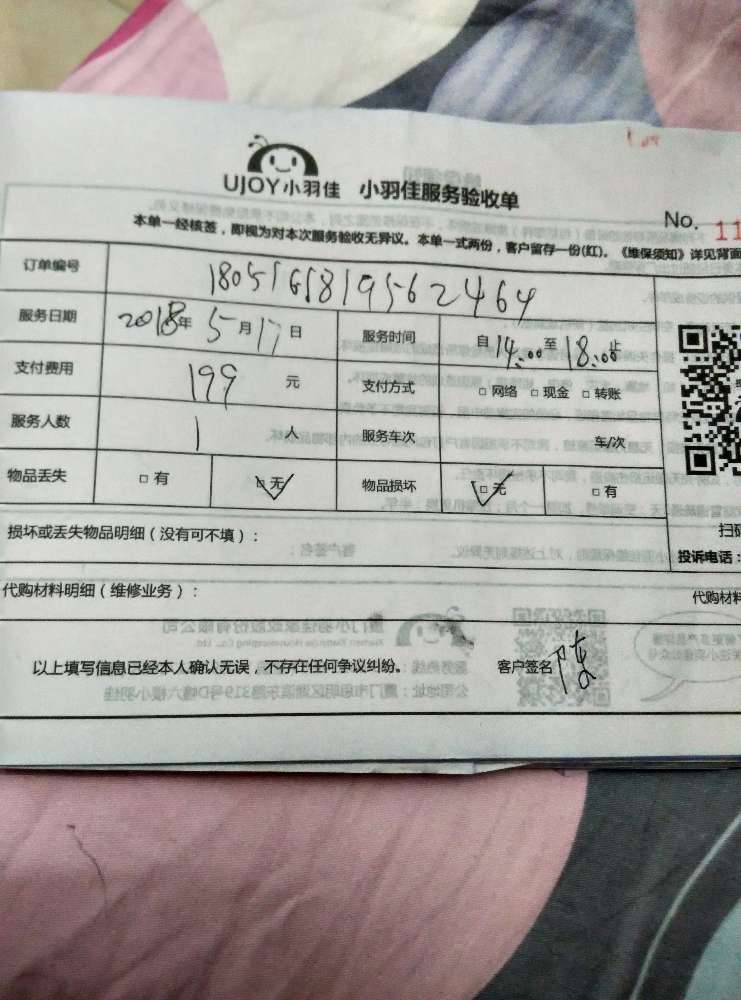 UJOY小羽佳 小羽佳服务验收单
No. 11
本单一经核签，即视为对本次服务验收无异议。本单一式两份，客户留存一份(红)。《维保须知》详见背面
订单编号 180516819562464
服务日期 2018年5月17日 服务时间 自14:00至18:00止
支付费用 199元 支付方式 □网络 □现金 □转账
服务人数 1人 服务车次 车/次
物品丢失 □有 □无 物品损坏 □无 □有
损坏或丢失物品明细（没有可不填）：
扫码
投诉电话：
代购材料明细（维修业务）： 代购材料
以上填写信息已经本人确认无误，不存在任何争议纠纷。 客户签名